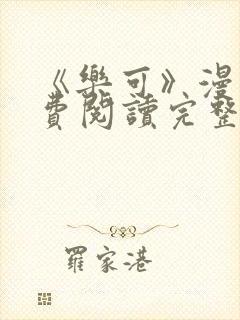 《樂可》漫
費閱讀完整
羅家港